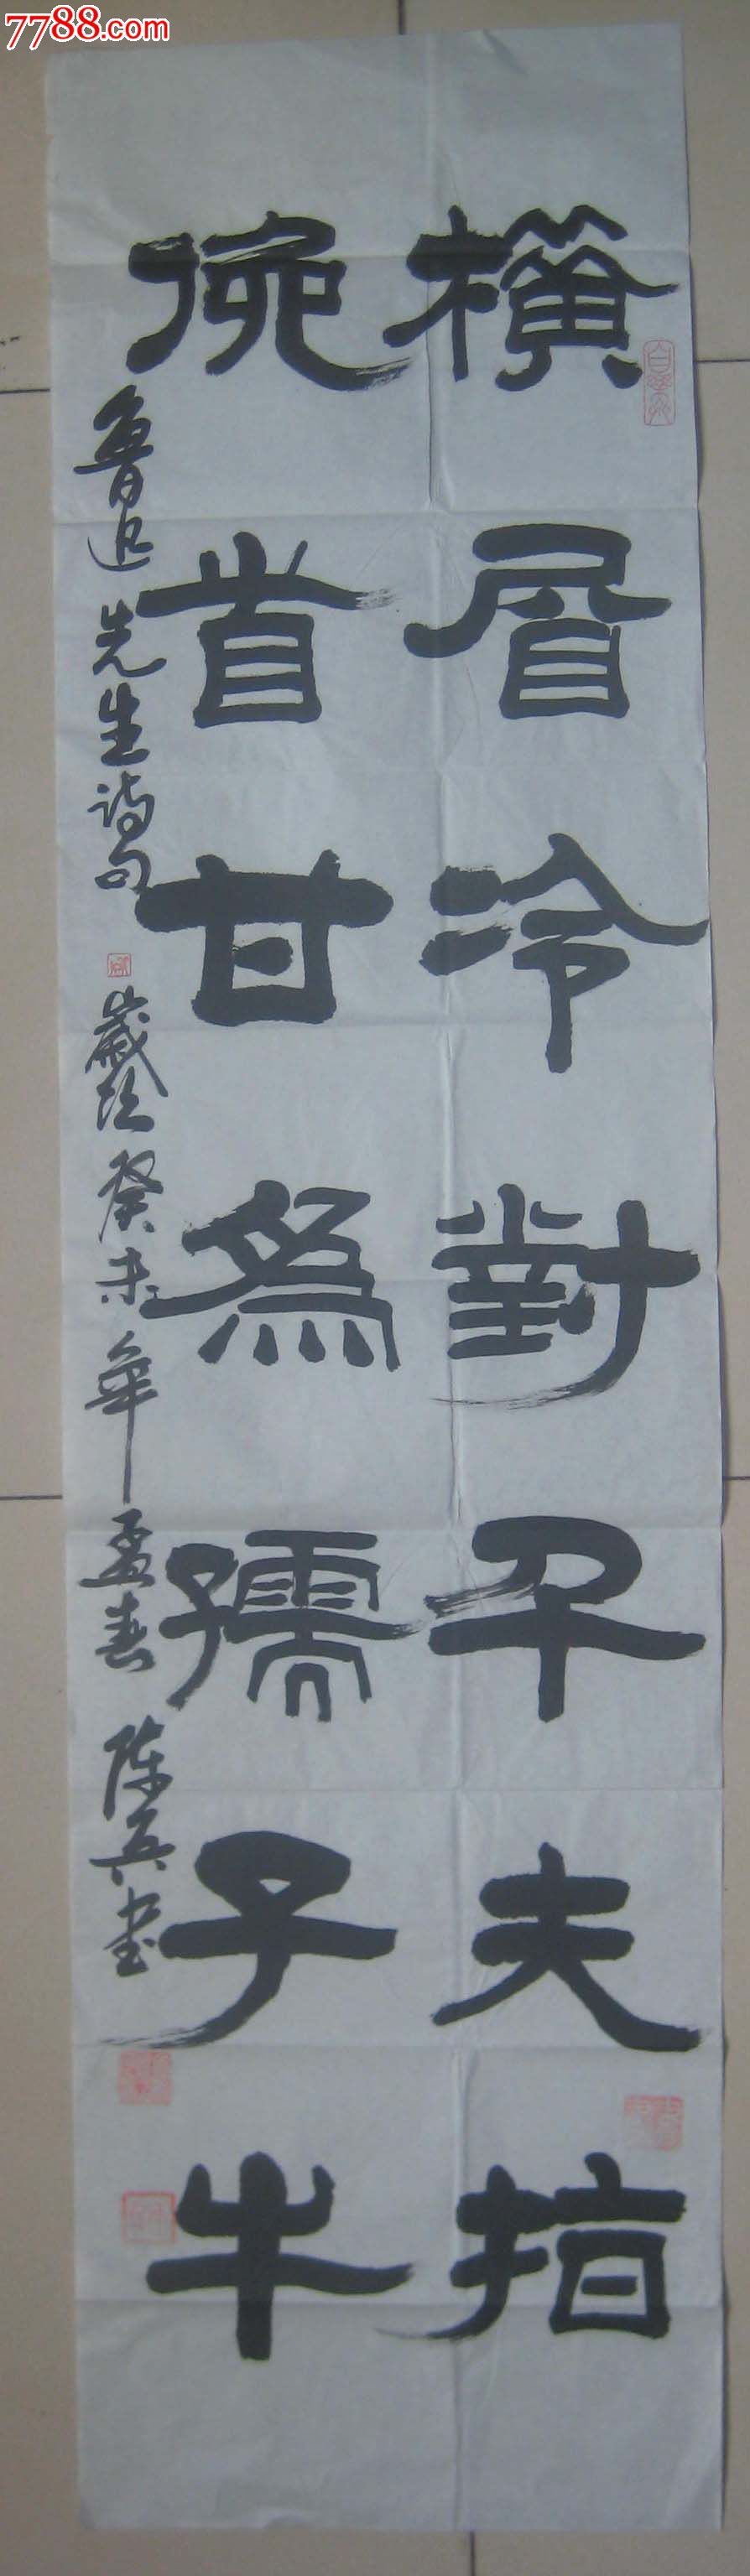 7788.com
橫眉冷對千夫指
俯首甘為孺子牛
鲁迅先生诗句 歲次癸未年孟春 陈兵书